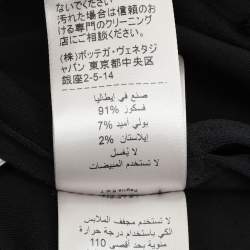 ないでください
汚れた場合は信頼のお
ける専門のクリーニング
店にご相談ください。
(株)ボッテガ・ヴェネタジ
ャパン 東京都中央区
銀座2-5-14
صنع في إيطاليا
فسكوز 91%
بولي أميد 7%
إيلاستان 2%
لا يُغسل
لا تستخدم المبيضات
لا تستخدم مجفف الملابس
الكي باستخدام درجة حرارة
مئوية بحد أقصى 110